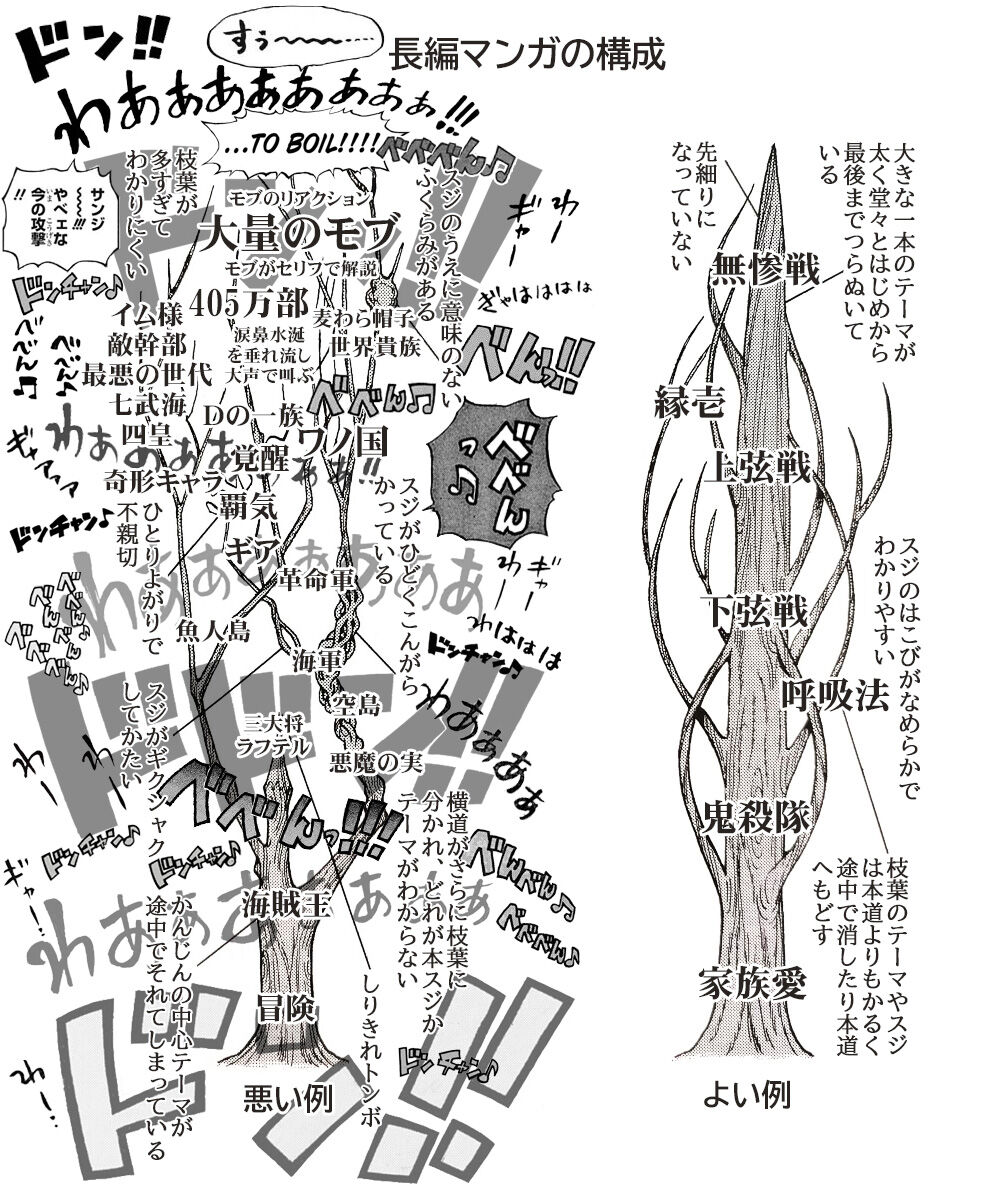 長編マンガの構成
ドン!!
すぅ〜〜〜……
わあぁぁぁぁぁぁぁぁ!!!
...TO BOIL!!!!
べべべん♫
サンジ
〜〜〜!!!
やべェな
今の攻撃
いま こうげき
!!
枝葉が
多すぎて
わかりにくい
モブのリアクション
大量のモブ
モブがセリフで解説
405万部
涙鼻水涎
を垂れ流し
大声で叫ぶ
麦わら帽子
世界貴族
イム様
敵幹部
最悪の世代
七武海
四皇
奇形キャラ
Dの一族
覚醒
覇気
ギア
ワノ国
革命軍
魚人島
海軍
空島
三大将
ラフテル
悪魔の実
海賊王
冒険
スジのうえに意味のない
ふくらみがある
スジがひどくこんがら
かっている
ひとりよがりで
不親切
スジがギクシャク
してかたい
横道がさらに枝葉に
分かれ、どれが本スジか
テーマがわからない
しりきれトンボ
かんじんの中心テーマが
途中でそれてしまっている
ドンチャン♪
ぎゃはははは
べん!!
べべん♫
べべんっ♫
ドンチャン♪
ドンチャン♫
わははは
わあぁぁぁ
べべんっ!!!
ドンチャン♪
ドンチャン♪
べんべん♪
べべべん♪
ドンチャン♪
ドン!!
悪い例
大きな一本のテーマが
太く堂々とはじめから
最後までつらぬいて
いる
先細りに
なっていない
無惨戦
縁壱
上弦戦
下弦戦
スジのはこびがなめらかで
わかりやすい
呼吸法
鬼殺隊
枝葉のテーマやスジ
は本道よりもかるく
途中で消したり本道
へもどす
家族愛
よい例